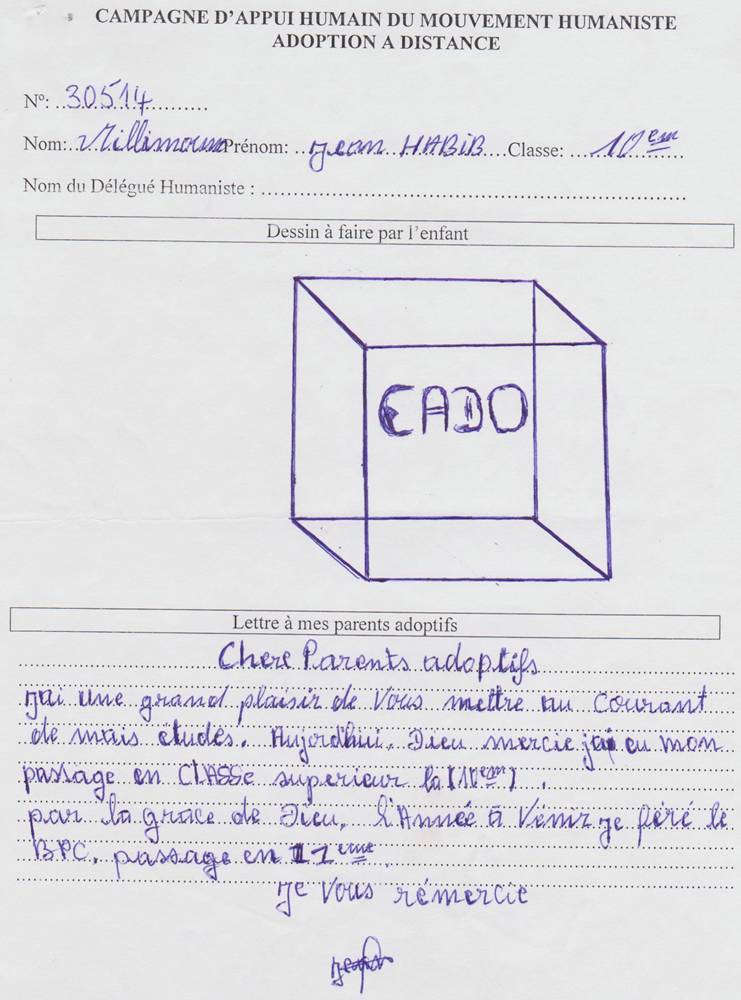 CAMPAGNE D'APPUI HUMAIN DU MOUVEMENT HUMANISTE
ADOPTION A DISTANCE
N°: 30514
Nom: Millimouno Prénom: Jean HABIB Classe: 10em
Nom du Délégué Humaniste :
Dessin à faire par l'enfant
CADO
Lettre à mes parents adoptifs
Chere Parents adoptifs
jai une grand plaisir de Vous mettre au courant
de mais études. Aujord'hui, Dieu mercie jai eu mon
passage en CLASSe superieur la (10em).
par la grace de Dieu, L'Année à Venir je féré le
BPC. passage en 11eme.
Je Vous rémercie